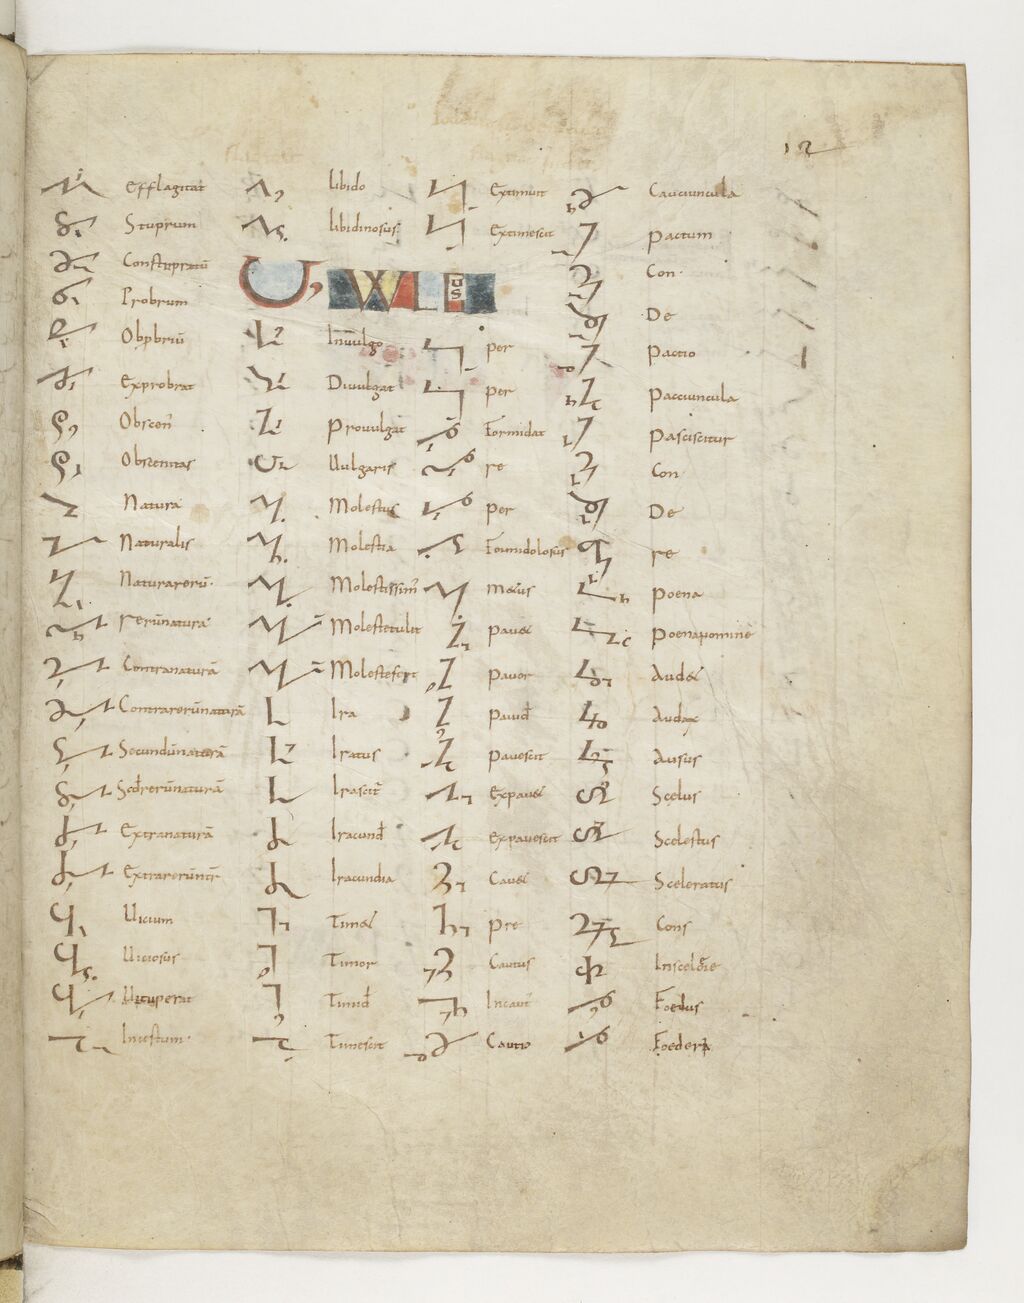 12
Efflagitat
Stuprum
Constupratū
Probrum
Obpbriū
Exprobrat
Obscen'
Obscenitas
Natura
Naturalis
Naturarerū·
rerūnatura
Contranaturā
Contrarerūnaturā
Secundūnaturā
Scdrerūnaturā
Extranaturā
Uicium
Uiciosus
Uituperat
Incestum·
libido
libidinosus·
UULGUS
Inuulgo
Diuulgat
Prouulgat
Uulgaris
Molestus
Molestia
Molestissim'
Molestetulit
Molestefert
Ira
Iratus
Irascit'
Iracund'
Iracundia
Tim&
Timor
Timid'
Timescit
Extimuit
Extimescit
per
per
Formidat
re
per
Formidolosus
m&us
pau&
pauor
pauid'
pauescit
expau&
expauescit
Cau&
pre
Cautus
Incaut'
Cautio
Cauciuncula
pactum
Con·
De
pactio
pacciuncula
pasciscitur
Con
De
re
poena
Aud&
Audax
Ausus
Scelus
Scelestus
Sceleratus
Cons
Foedus